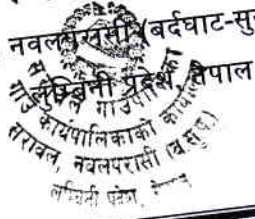 नवलपरासी (बर्दघाट-सु
लुम्बिनी प्रदेश, नेपाल
गाउँ कार्यपालिकाको कार्यालय
सरावल, नवलपरासी (ब.सु.प.)
लुम्बिनी प्रदेश, नेपाल